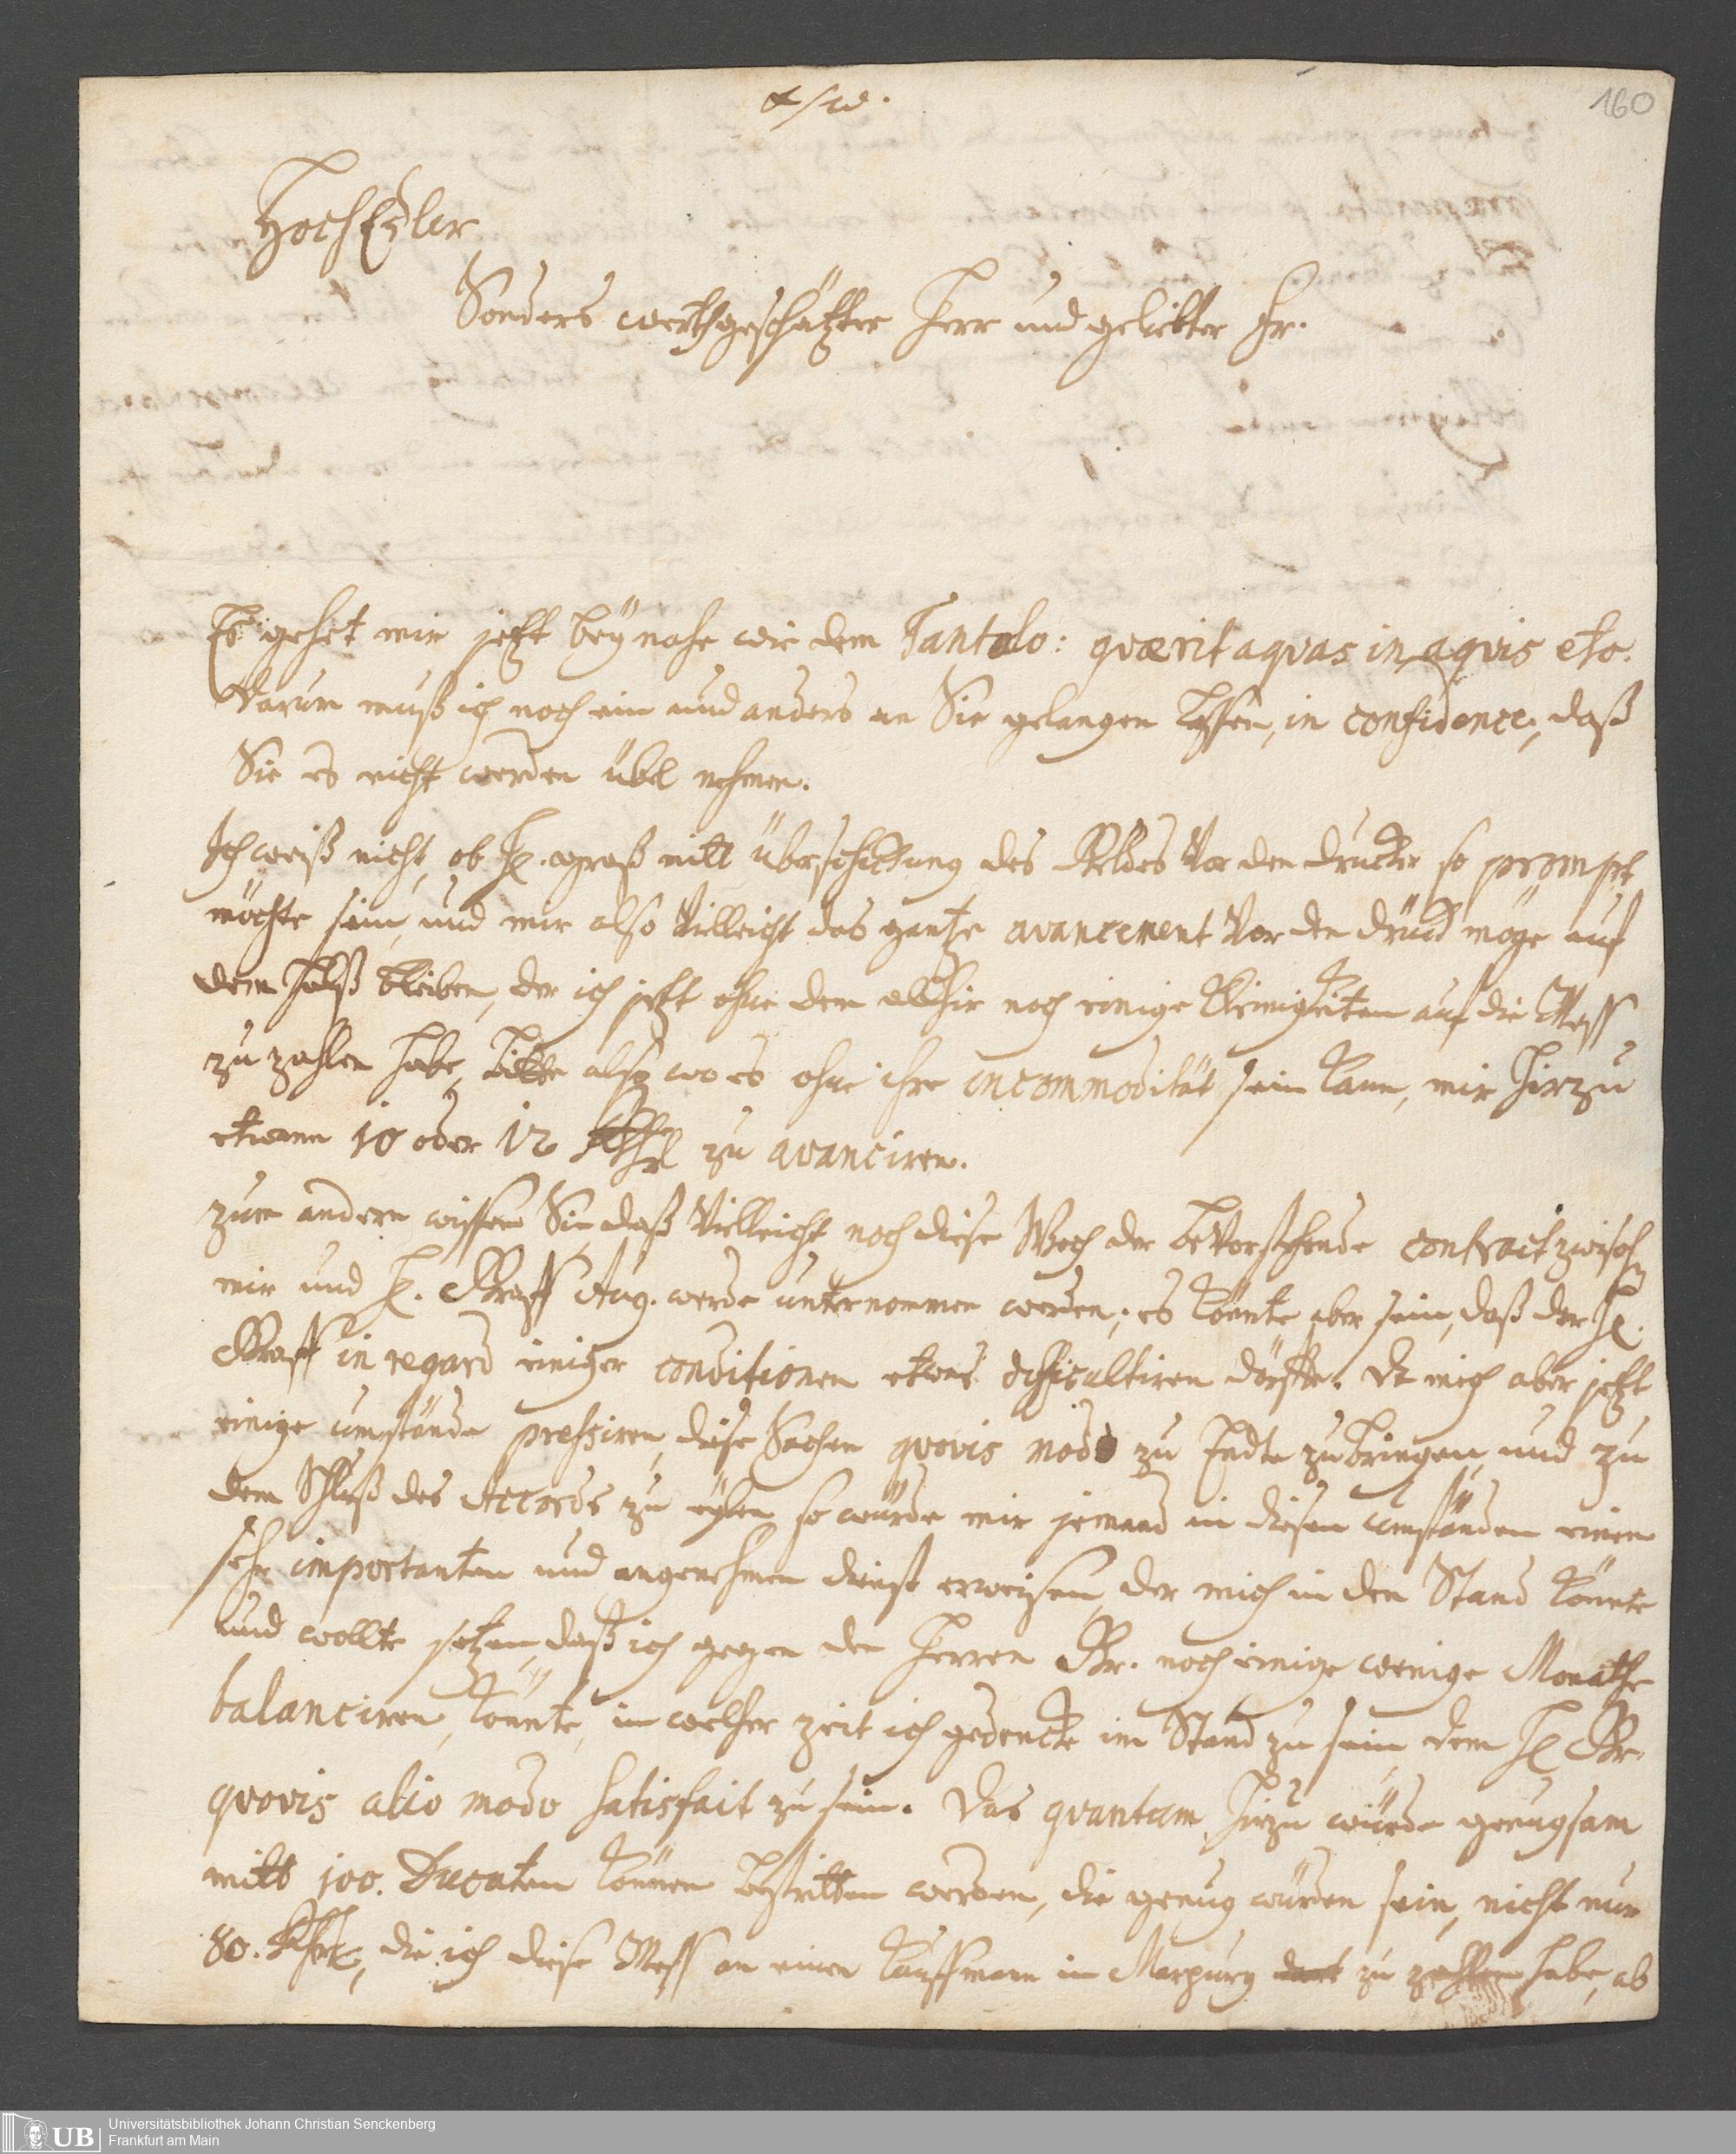 160
HochEdler
Sonders werthgeschätzter Herr und geliebter Fr.
Es gehet mir jetzt beÿnahe wie dem Tantalo: qværit aqvas in aqvis etc.
Darum muß ich noch ein und anders an Sie gelangen laßen, in confidence, daß
Sie es nicht werden übel nehmen.
Ich weiß nicht, ob H. Graß mitt überschickung des Geldes vor den drucker so prompt
möchte sein, und mir also villeicht das gantze avancement vor den druck möge auf
dem Halß bleiben, der ich jetzt ohne dem allhie noch einige Kleinigkeiten auf die Mess
zu zahlen habe, bitte also wo es ohne ihre incommodität sein kann, mir hirzu
etwann 10 oder 12 Rthl zu avanciren.
zum andern wissen Sie, daß villeicht noch diese Woch der bevorstehende contract zwischen
mir und H. Graff Aug. werde unternommen werden; es könnte aber sein, daß der H.
Graff in regard einiger conditionen etwas difficultiren dörffte. Da mich aber jetzt
einige umstände pressiren, diese Sachen qvovis modo zu Endte zu bringen, und zu
dem Schluß des Accords zu eÿlen so würde mir jemand in diesen umständen einen
sehr importanten und angenehmen dienst erweisen, der mich in den Stand könnte
und wollte setzen, daß ich gegen den Herren Gr. noch einige wenige Monathe
balanciren könnte, in welcher zeit ich gedencke im Stand zu sein, dem H. Gr.
qvovis alio modo satisfait zu sein. Das qvantum hirzu würde genugsam
mitt 100. Ducaten können bestritten werden, die genug würden sein, nicht nur
80. Rthl, die ich diese Mess an einen Kauffmann in Marpurg zu zahlen habe, ab
UB
Universitätsbibliothek Johann Christian Senckenberg
Frankfurt am Main